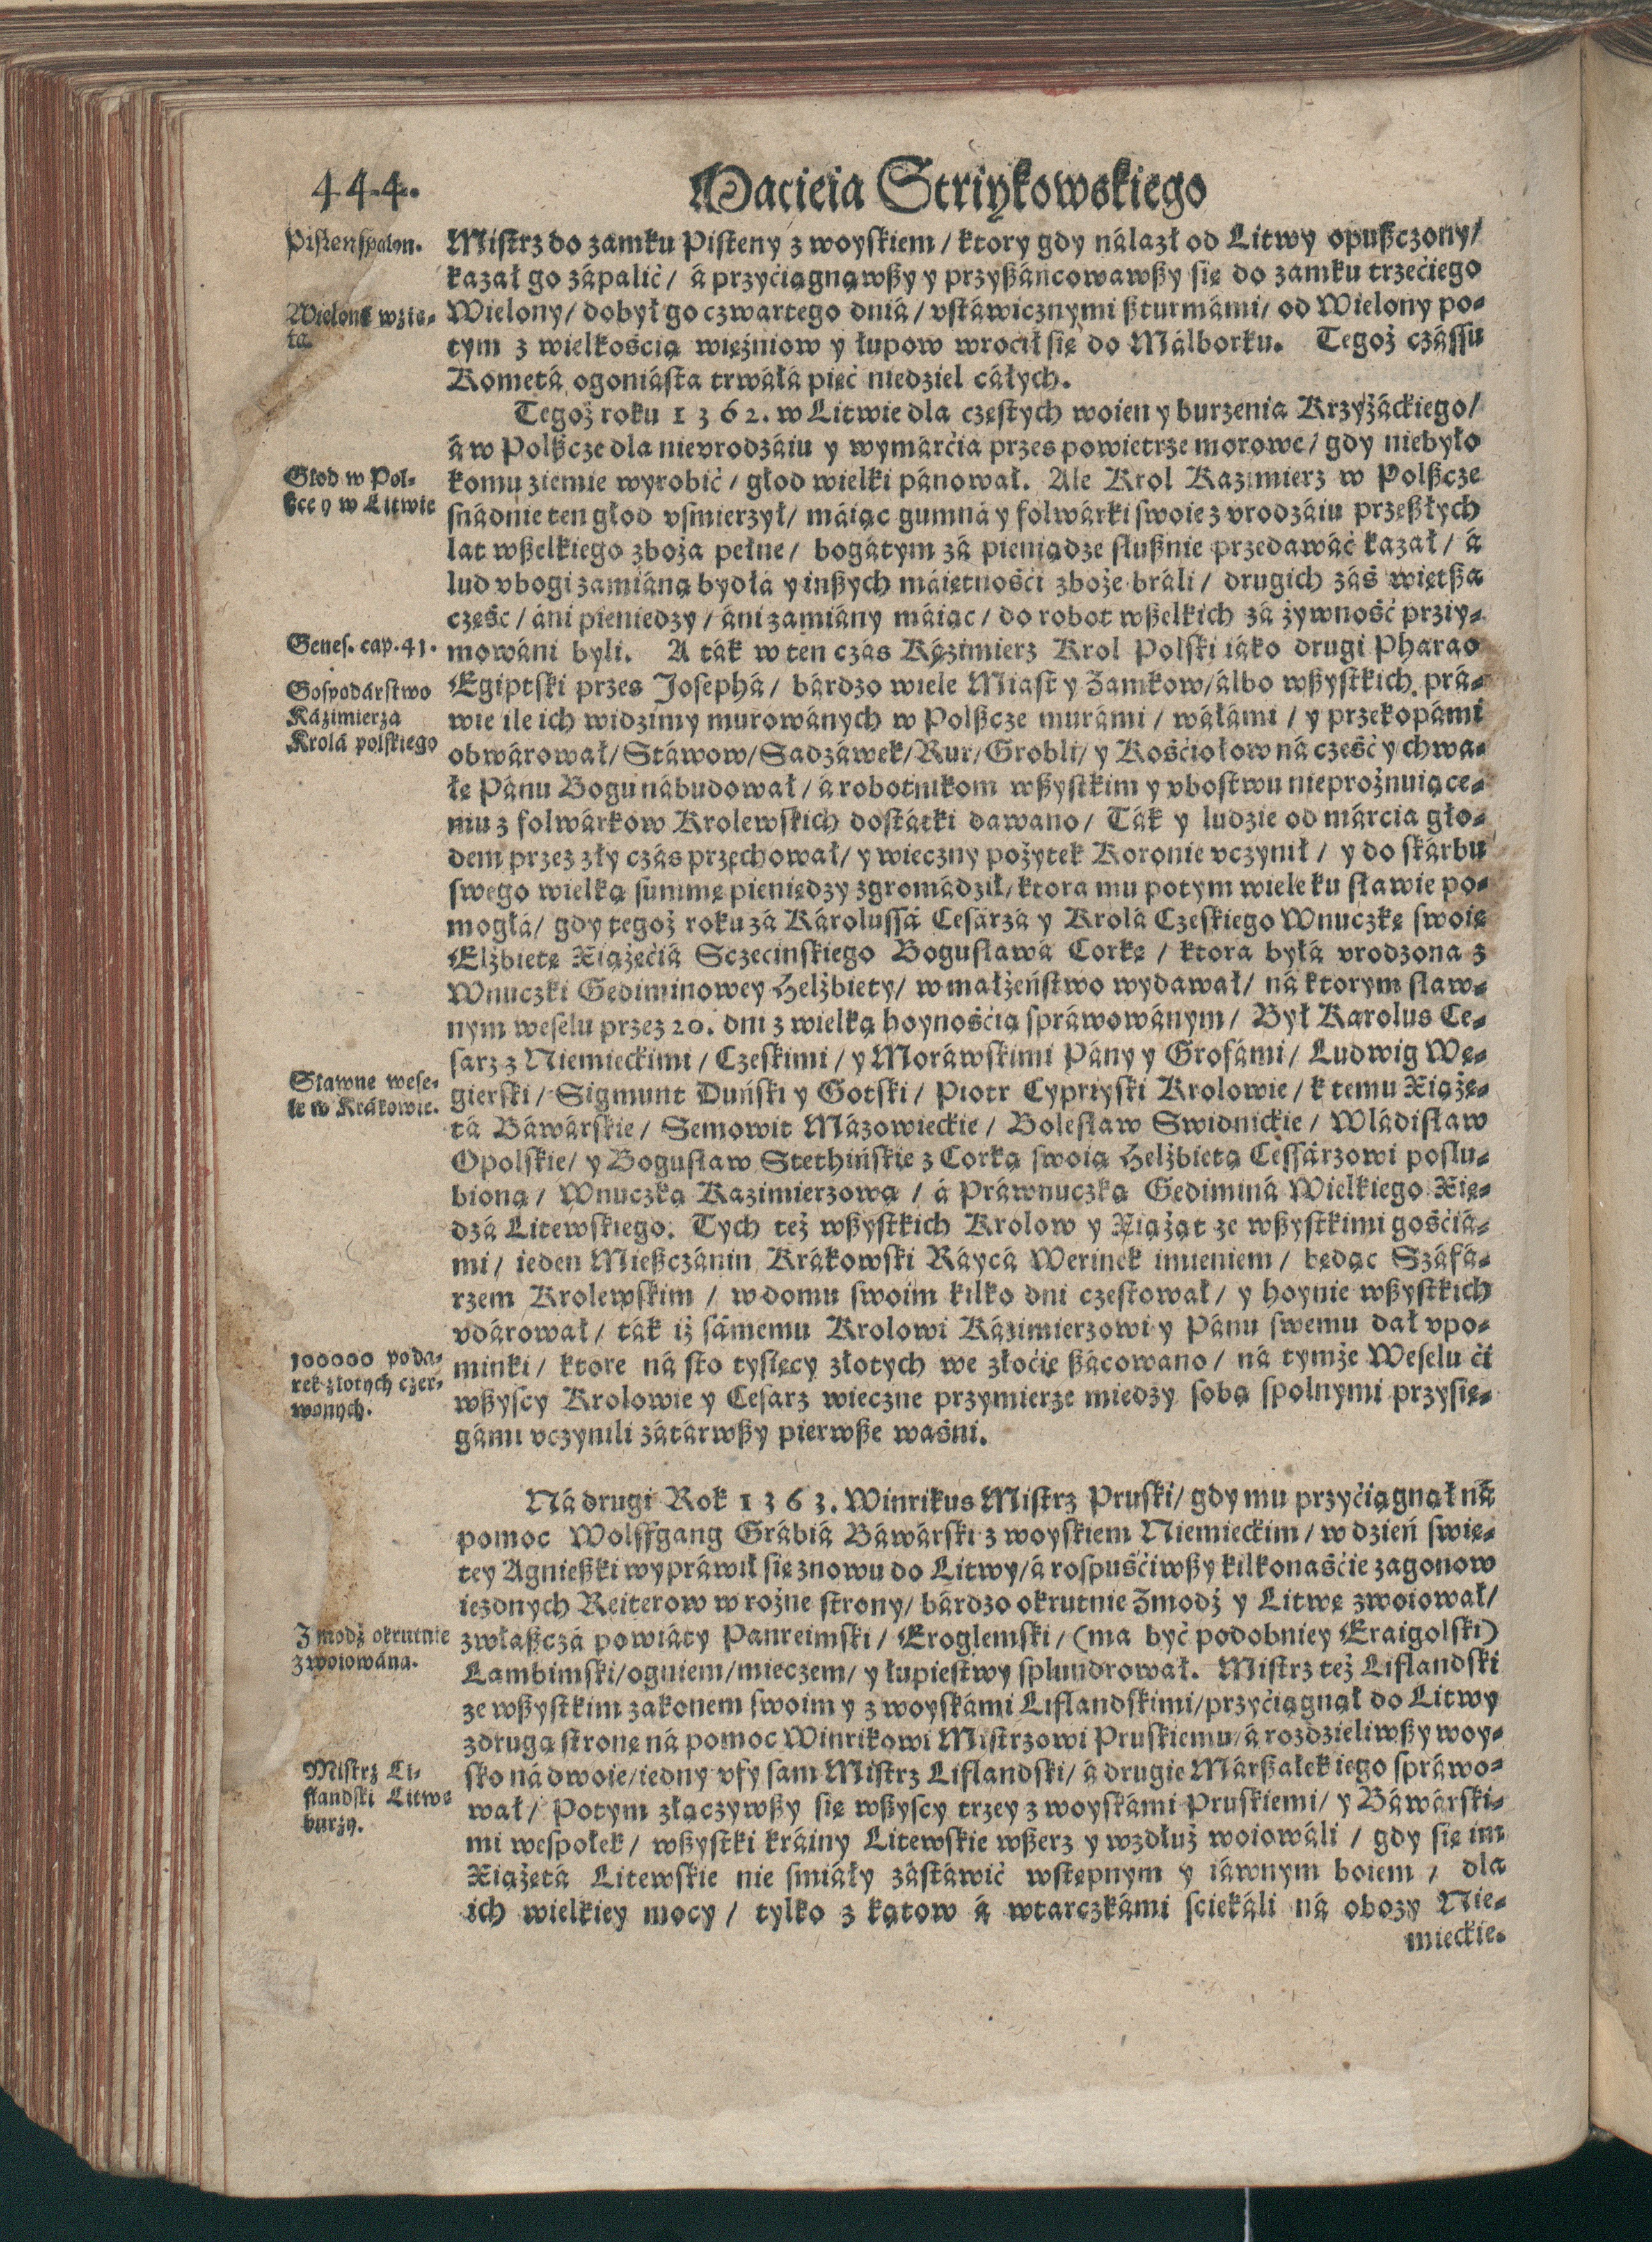 444.
Macieia Striykowskiego
Pisten spalon.
Mistrz do zamku Pisteny z woyskiem / ktory gdy nálazł od Litwy opußczony /
kazał go zápalić / á przyćiągnąwßy y przyßáncowawßy się do zamku trzećiego
Wieloná wzię-
ta.
Wielony / dobył go czwartego dniá / vstáwicznymi ßturmámi / od Wielony po-
tym z wielkością więźniow y łupow wrocił się do Málborku. Tegoż czássu
Kometá ogoniásta trwáłá pięć niedziel cáłych.
Tegoż roku 1362. w Litwie dla częstych woien y burzenia Krzyżáckiego /
á w Polßcze dla nievrodzáiu y wymárćia przes powietrze morowe / gdy niebyło
Głod w Pol-
ßce y w Litwie
komu ziemie wyrobić / głod wielki pánował. Ale Krol Kazimierz w Polßcze
snádnie ten głod vśmierzył / máiąc gumná y folwárki swoie z vrodzáiu przeßłych
lat wßelkiego zboża pełne / bogátym zá pieniądze słußnie przedawáć kazał / á
lud vbogi zamiáną bydłá y inßych máiętnośći zboże bráli / drugich záś więtßa
cześc / áni pieniedzy / áni zamiány máiąc / do robot wßelkich zá żywność przyy-
Genes. cap. 41.
mowáni byli. A ták w ten czás Kázimierz Krol Polski iáko drugi Pharao
Gospodárstwo
Kázimierza
Krolá polskiego
Egiptski przes Josephá / bárdzo wiele Miast y Zamkow / álbo wßystkich prá-
wie ile ich widzimy murowánych w Polßcze murámi / wáłámi / y przekopámi
obwárował / Stáwow / Sadzáwek / Rur / Grobli / y Kośćiołow ná cześć y chwa-
łę Pánu Bogu nábudował / á robotnikom wßystkim y vbostwu nieprożnuiące-
mu z folwárkow Krolewskich dostátki dawano / Ták y ludzie od márcia gło-
dem przez zły czás przechował / y wieczny pożytek Koronie vczynił / y do skárbu
swego wielką summę pieniędzy zgromádził / ktora mu potym wiele ku sławie po-
mogłá / gdy tegoż roku zá Károlussá Cesárzá y Krolá Czeskiego Wnuczkę swoię
Elżbietę Xiążęćiá Sczecinskiego Bogusławá Corkę / ktora byłá vrodzona z
Wnuczki Gediminowey Helżbiety / w małżeństwo wydawał / ná ktorym sław-
nym weselu przez 20. dni z wielką hoynośćią spráwowánym / Był Karolus Ce-
sarz z Niemieckimi / Czeskimi / y Moráwskimi Pány y Grofámi / Ludwig Wę-
Sławne wese-
le w Krákowie.
gierski / Sigmunt Duński y Gotski / Piotr Cypryiski Krolowie / k temu Xiążę-
tá Báwárskie / Semowit Mázowieckie / Bolesław Swidnickie / Władisław
Opolskie / y Bogusław Stethińskie z Corką swoią Helżbietą Cessárzowi poslu-
bioną / Wnuczką Kazimierzową / á Práwnuczką Gediminá Wielkiego Xię-
dzá Litewskiego. Tych też wßystkich Krolow y Xiążąt ze wßystkimi gośćiá-
mi / ieden Mießczánin Krákowski Ráycá Werinek imieniem / będąc Száfá-
rzem Krolewskim / w domu swoim kilko dni częstował / y hoynie wßystkich
vdárował / ták iż sámemu Krolowi Kázimierzowi y Pánu swemu dał vpo-
100000 poda-
rek złotych czer-
wonych.
minki / ktore ná sto tysięcy złotych we złoćie ßácowano / ná tymże Weselu ći
wßyscy Krolowie y Cesarz wieczne przymierze miedzy sobą spolnymi przysię-
gámi vczynili zátárwßy pierwße waśni.
Ná drugi Rok 1363. Winrikus Mistrz Pruski / gdy mu przyćiągnął ná
pomoc Wolffgang Grábiá Báwárski z woyskiem Niemieckim / w dzień swię-
tey Agnießki wypráwił się znowu do Litwy / á rospuśćiwßy kilkonaśćie zagonow
iezdnych Reiterow w rożne strony / bárdzo okrutnie Zmodź y Litwę zwoiował /
Zmodź okrutnie
zwoiowána.
zwłaßczá powiáty Panreimski / Eroglemski / (ma być podobniey Eraigolski)
Lambimski / ogniem / mieczem / y łupiestwy splundrował. Mistrz też Liflandski
ze wßystkim zakonem swoim y z woyskámi Liflandskimi / przyćiągnął do Litwy
z drugą stronę ná pomoc Winrikowi Mistrzowi Pruskiemu / á rozdzieliwßy woy-
Mistrz Li-
flandski Litwę
burzy.
sko ná dwoie / iedny vfy sam Mistrz Liflandski / á drugie Márßałek iego spráwo-
wał / Potym złączywßy się wßyscy trzey z woyskámi Pruskiemi / y Báwárski-
mi wespołek / wßystki kráiny Litewskie wßerz y wzdłuż woiowáli / gdy się im
Xiążętá Litewskie nie śmiáły zástáwić wstępnym y iáwnym boiem / dla
ich wielkiey mocy / tylko z kątow á wtarczkámi sciekáli ná obozy Nie-
mieckie.